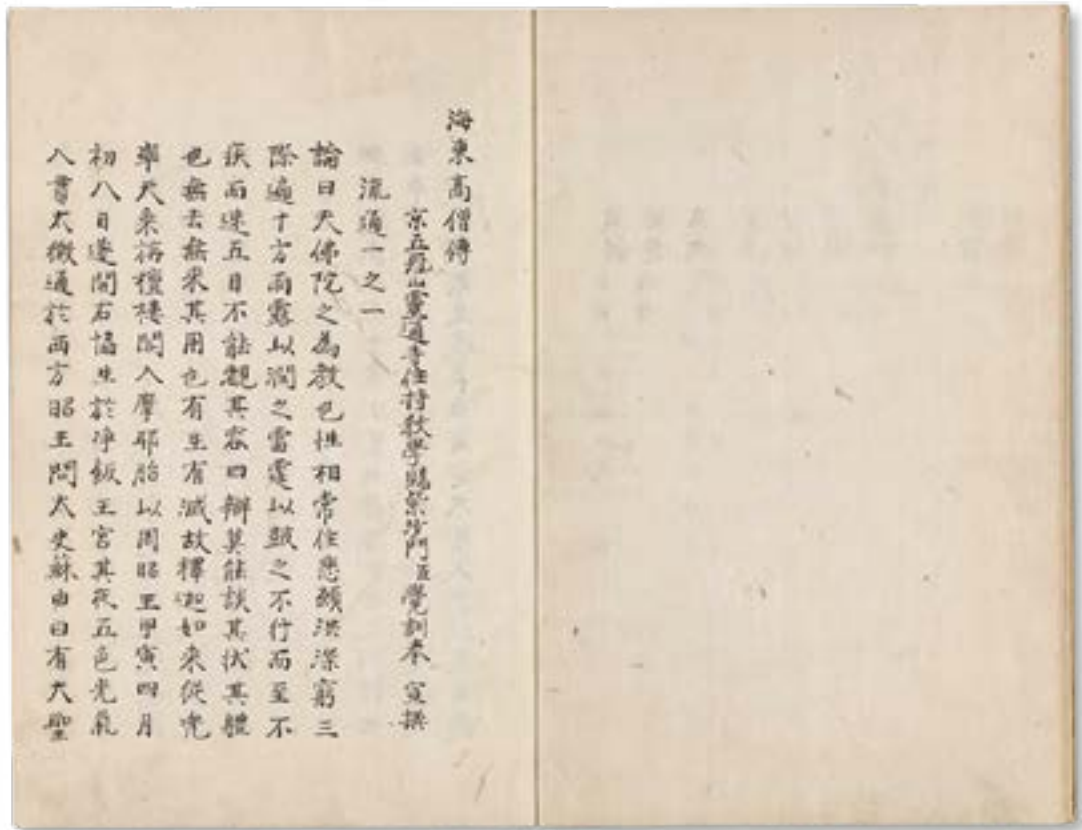 海東高僧傳
京五冠山靈通寺住持教學賜紫沙門臣覺訓奉 宣撰
流通一之一
論曰夫佛陀之為教也性相常住悲願洪深窮三
際遍十方雨露以潤之雷霆以鼓之不行而至不
疾而速五目不能覩其容四辯莫能談其狀其體
也無去無来其用也有生有滅故釋迦如来從兜
率天来祊檀樓閣入摩耶胎以周昭王甲寅四月
初八日遂開右脇生於净飯王宮其夜五色光氣
入貫太微通於西方昭王問太史蘇由曰有大聖